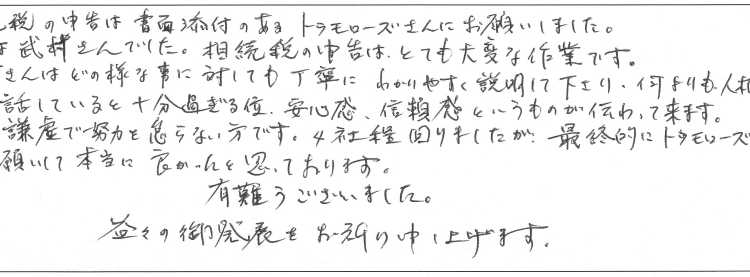 税の申告は書面添付のあるトラモローズさんにお願いしました。
武村さんでした。相続税の申告は、とても大変な作業です。
さんはどの様な事に対しても丁寧にわかりやすく説明して下さり、何よりも人柄
話していると十分過ぎる位、安心感、信頼感というものが伝わって来ます。
謙虚で努力を怠らない方です。4社程回りましたが、最終的にトラモローズ
願いして本当に良かったと思っております。
有難うございました。
益々の御発展をお祈り申し上げます。